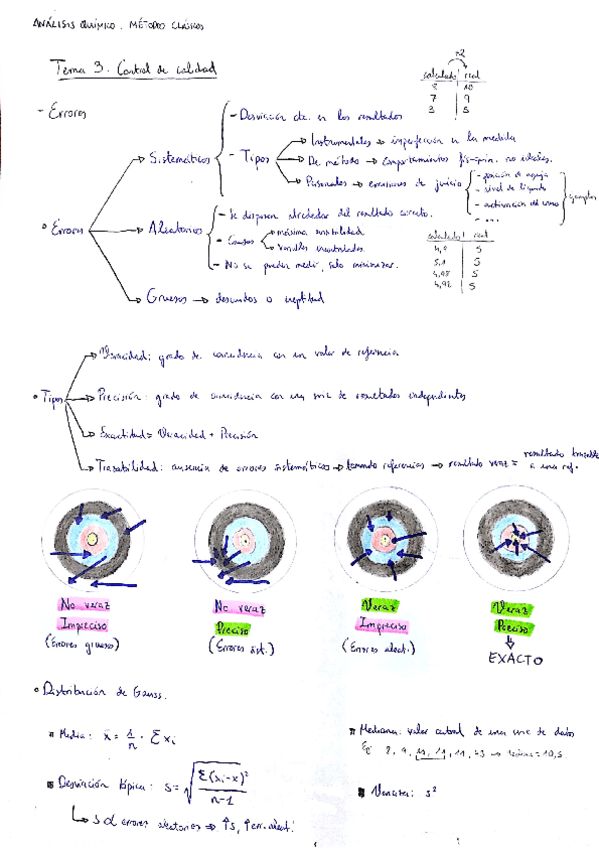 ANÁLISIS QUÍMICO. MÉTODOS CLÁSICOS
Tema 3. Control de calidad
calculado | real
8 | 10
7 | 9
3 | 5
- Errores
• Errores
Sistemáticos
- Desviación cte. en los resultados
- Tipos
Instrumentales → imperfección en la medida
De método → comportamientos fís-quím. no ideales.
Personales → errores de juicio
- posición de aguja
- nivel de líquido
Aleatorios
- Se disponen alrededor del resultado correcto.
- Causas
máxima sensibilidad
variables incontroladas
- No se pueden medir, solo minimizar.
calculado | real
4,9 | 5
5,1 | 5
4,98 | 5
4,92 | 5
Gruesos → descuidos o ineptitud
• Tipos
Veracidad: grado de coincidencia con un valor de referencia
Precisión: grado de coincidencia con una serie de resultados independientes
Exactitud = Veracidad + Precisión
Trazabilidad: ausencia de errores sistemáticos → tomando referencias → resultado veraz = resultado trazable a una ref.
No veraz
Impreciso
(Errores gruesos)
No veraz
Preciso
(Errores sist.)
Veraz
Impreciso
(Errores aleat.)
Veraz
Preciso
EXACTO
• Distribución de Gauss.
Media: x̄ = 1/n · Σ xi
Mediana: valor central de una serie de datos
Desviación típica: s = √(Σ(xi-x̄)²/(n-1))
Varianza: s²
s α errores aleatorios ⇒ ↑s, ↑err. aleat.